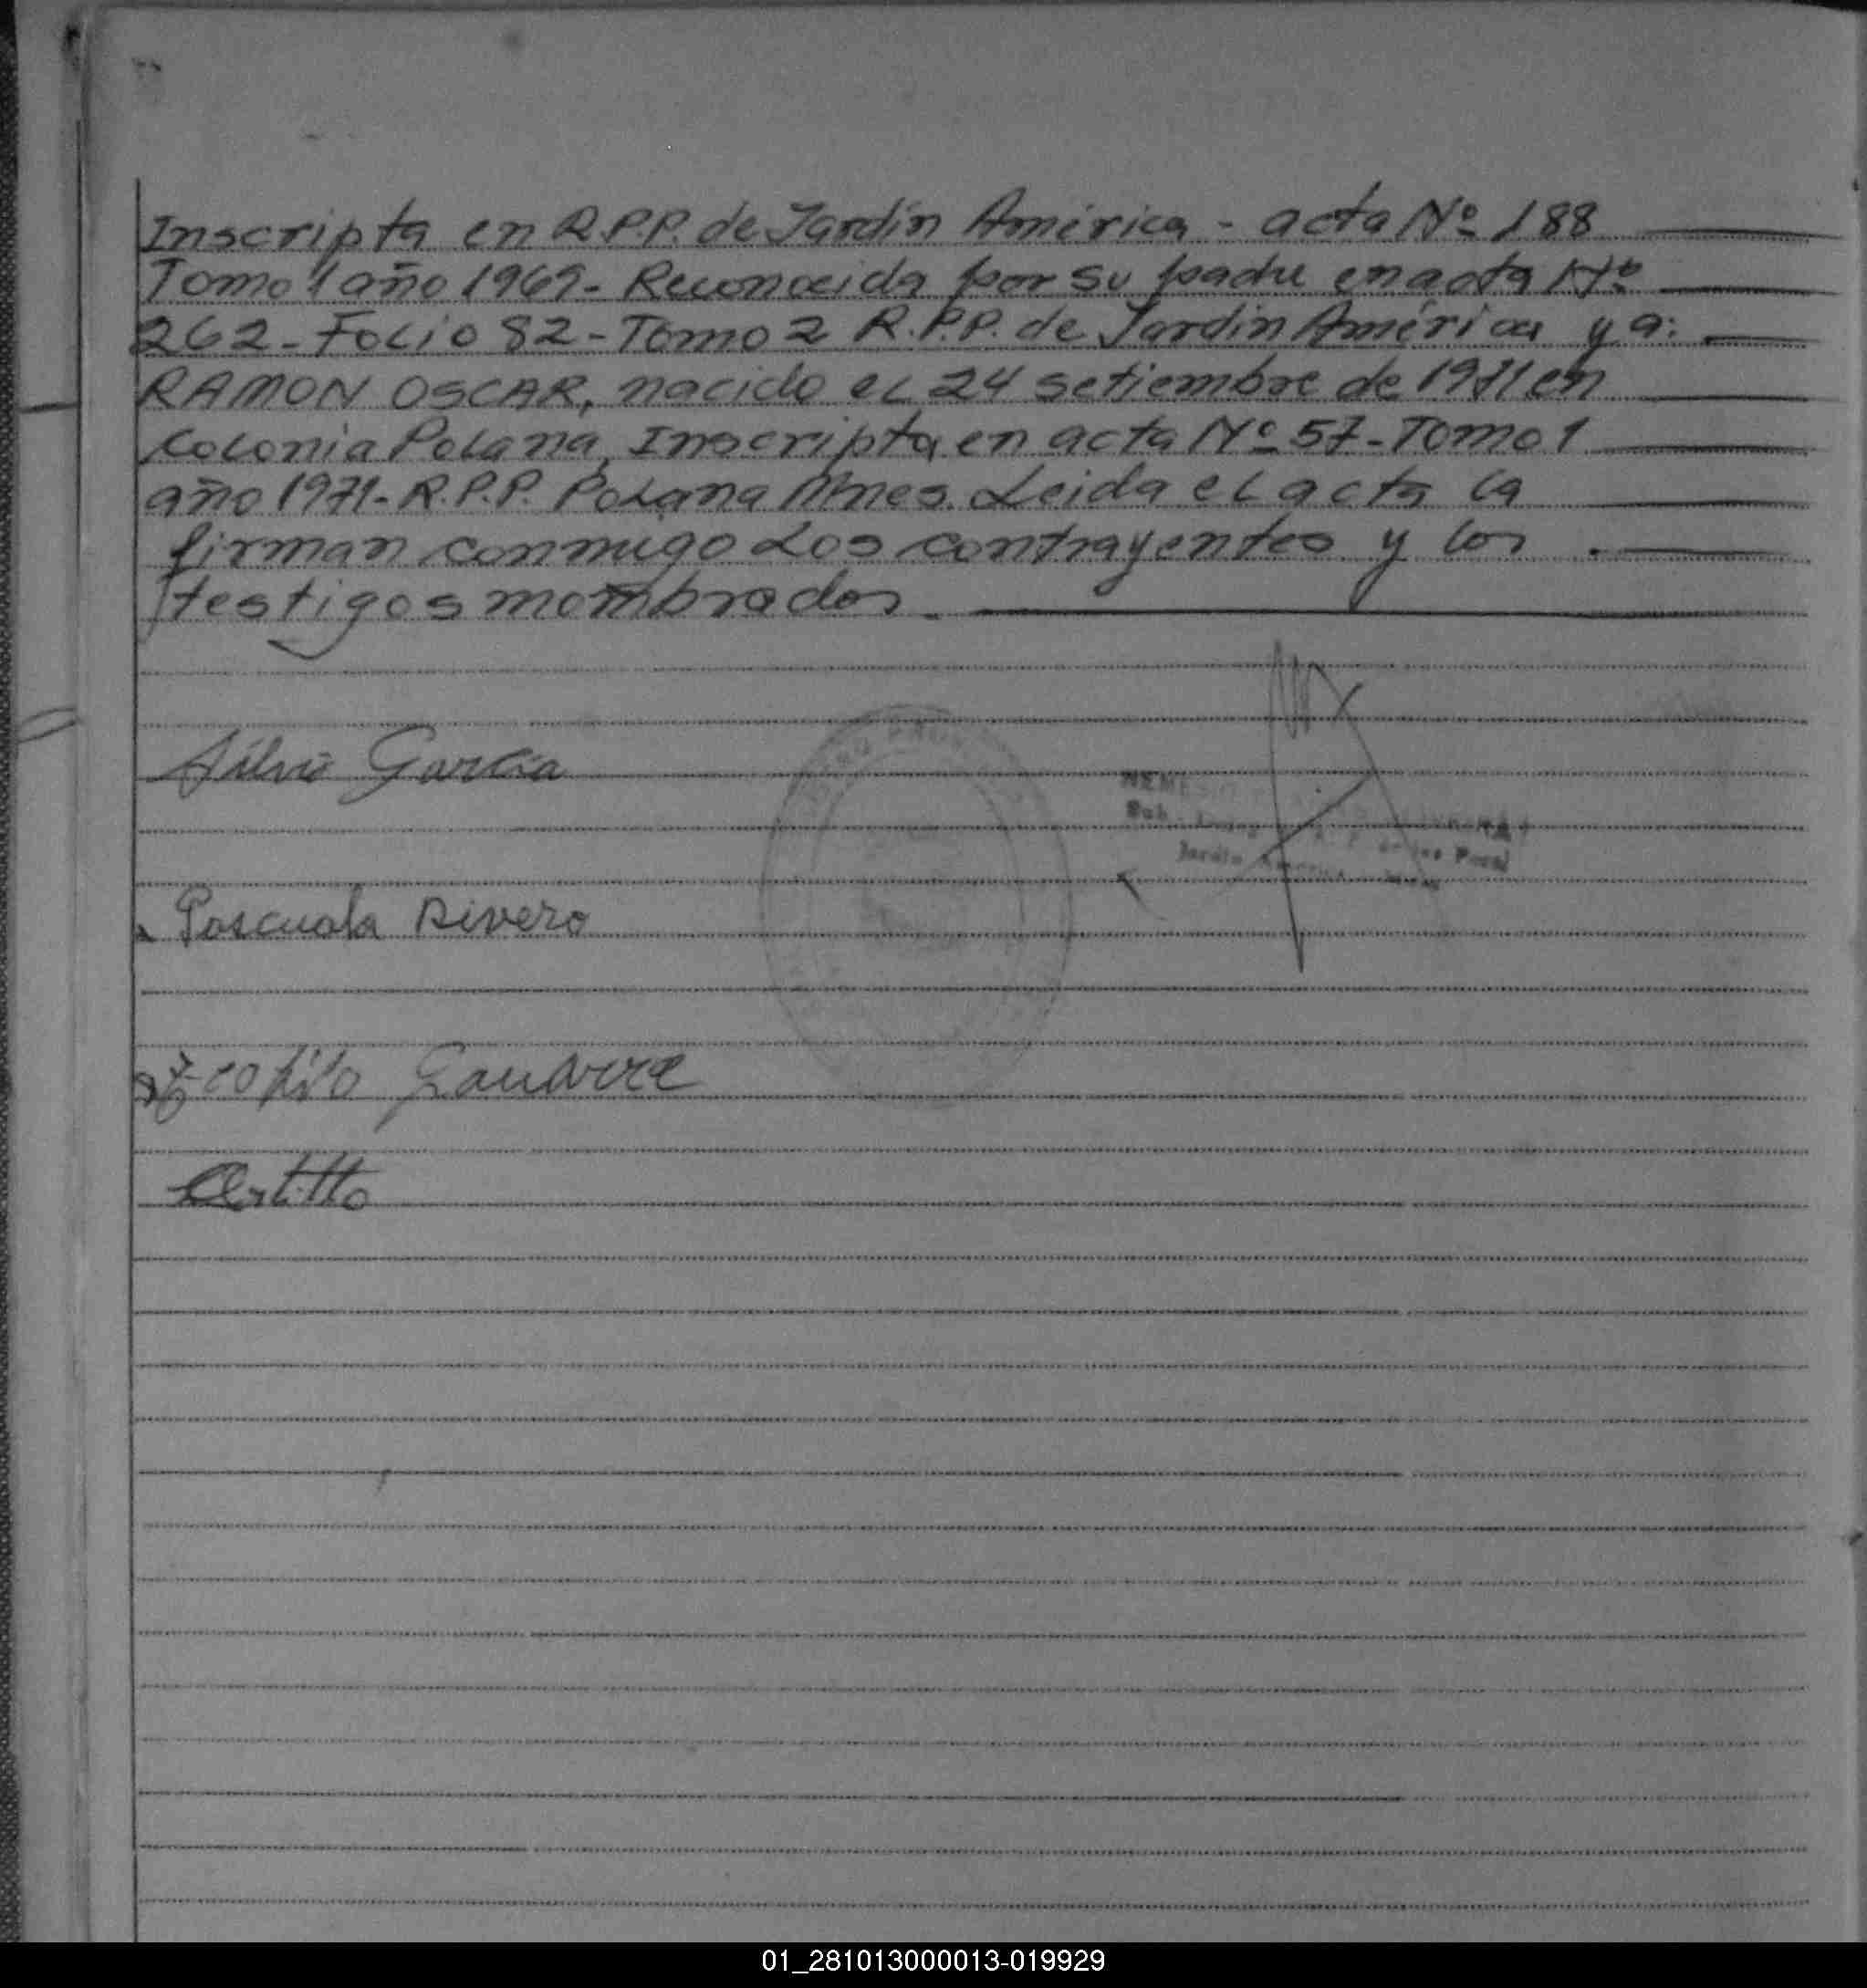 Inscripta en R.P.P. de Jardín América - acta Nº 188
Tomo 1 año 1969 - Reconocida por su padre en acta Nº
262 - Folio 82 - Tomo 2 R.P.P. de Jardín América y a:
RAMON OSCAR, nacido el 24 setiembre de 1971 en
Colonia Polana, Inscripta en acta Nº 57 - Tomo 1
año 1971 - R.P.P. Polana Mnes. Leida el acta la
firman conmigo Los contrayentes y los
testigos nombrados.
Silvio Garcia
Pascuala Rivero
Jardín América
01_281013000013-019929